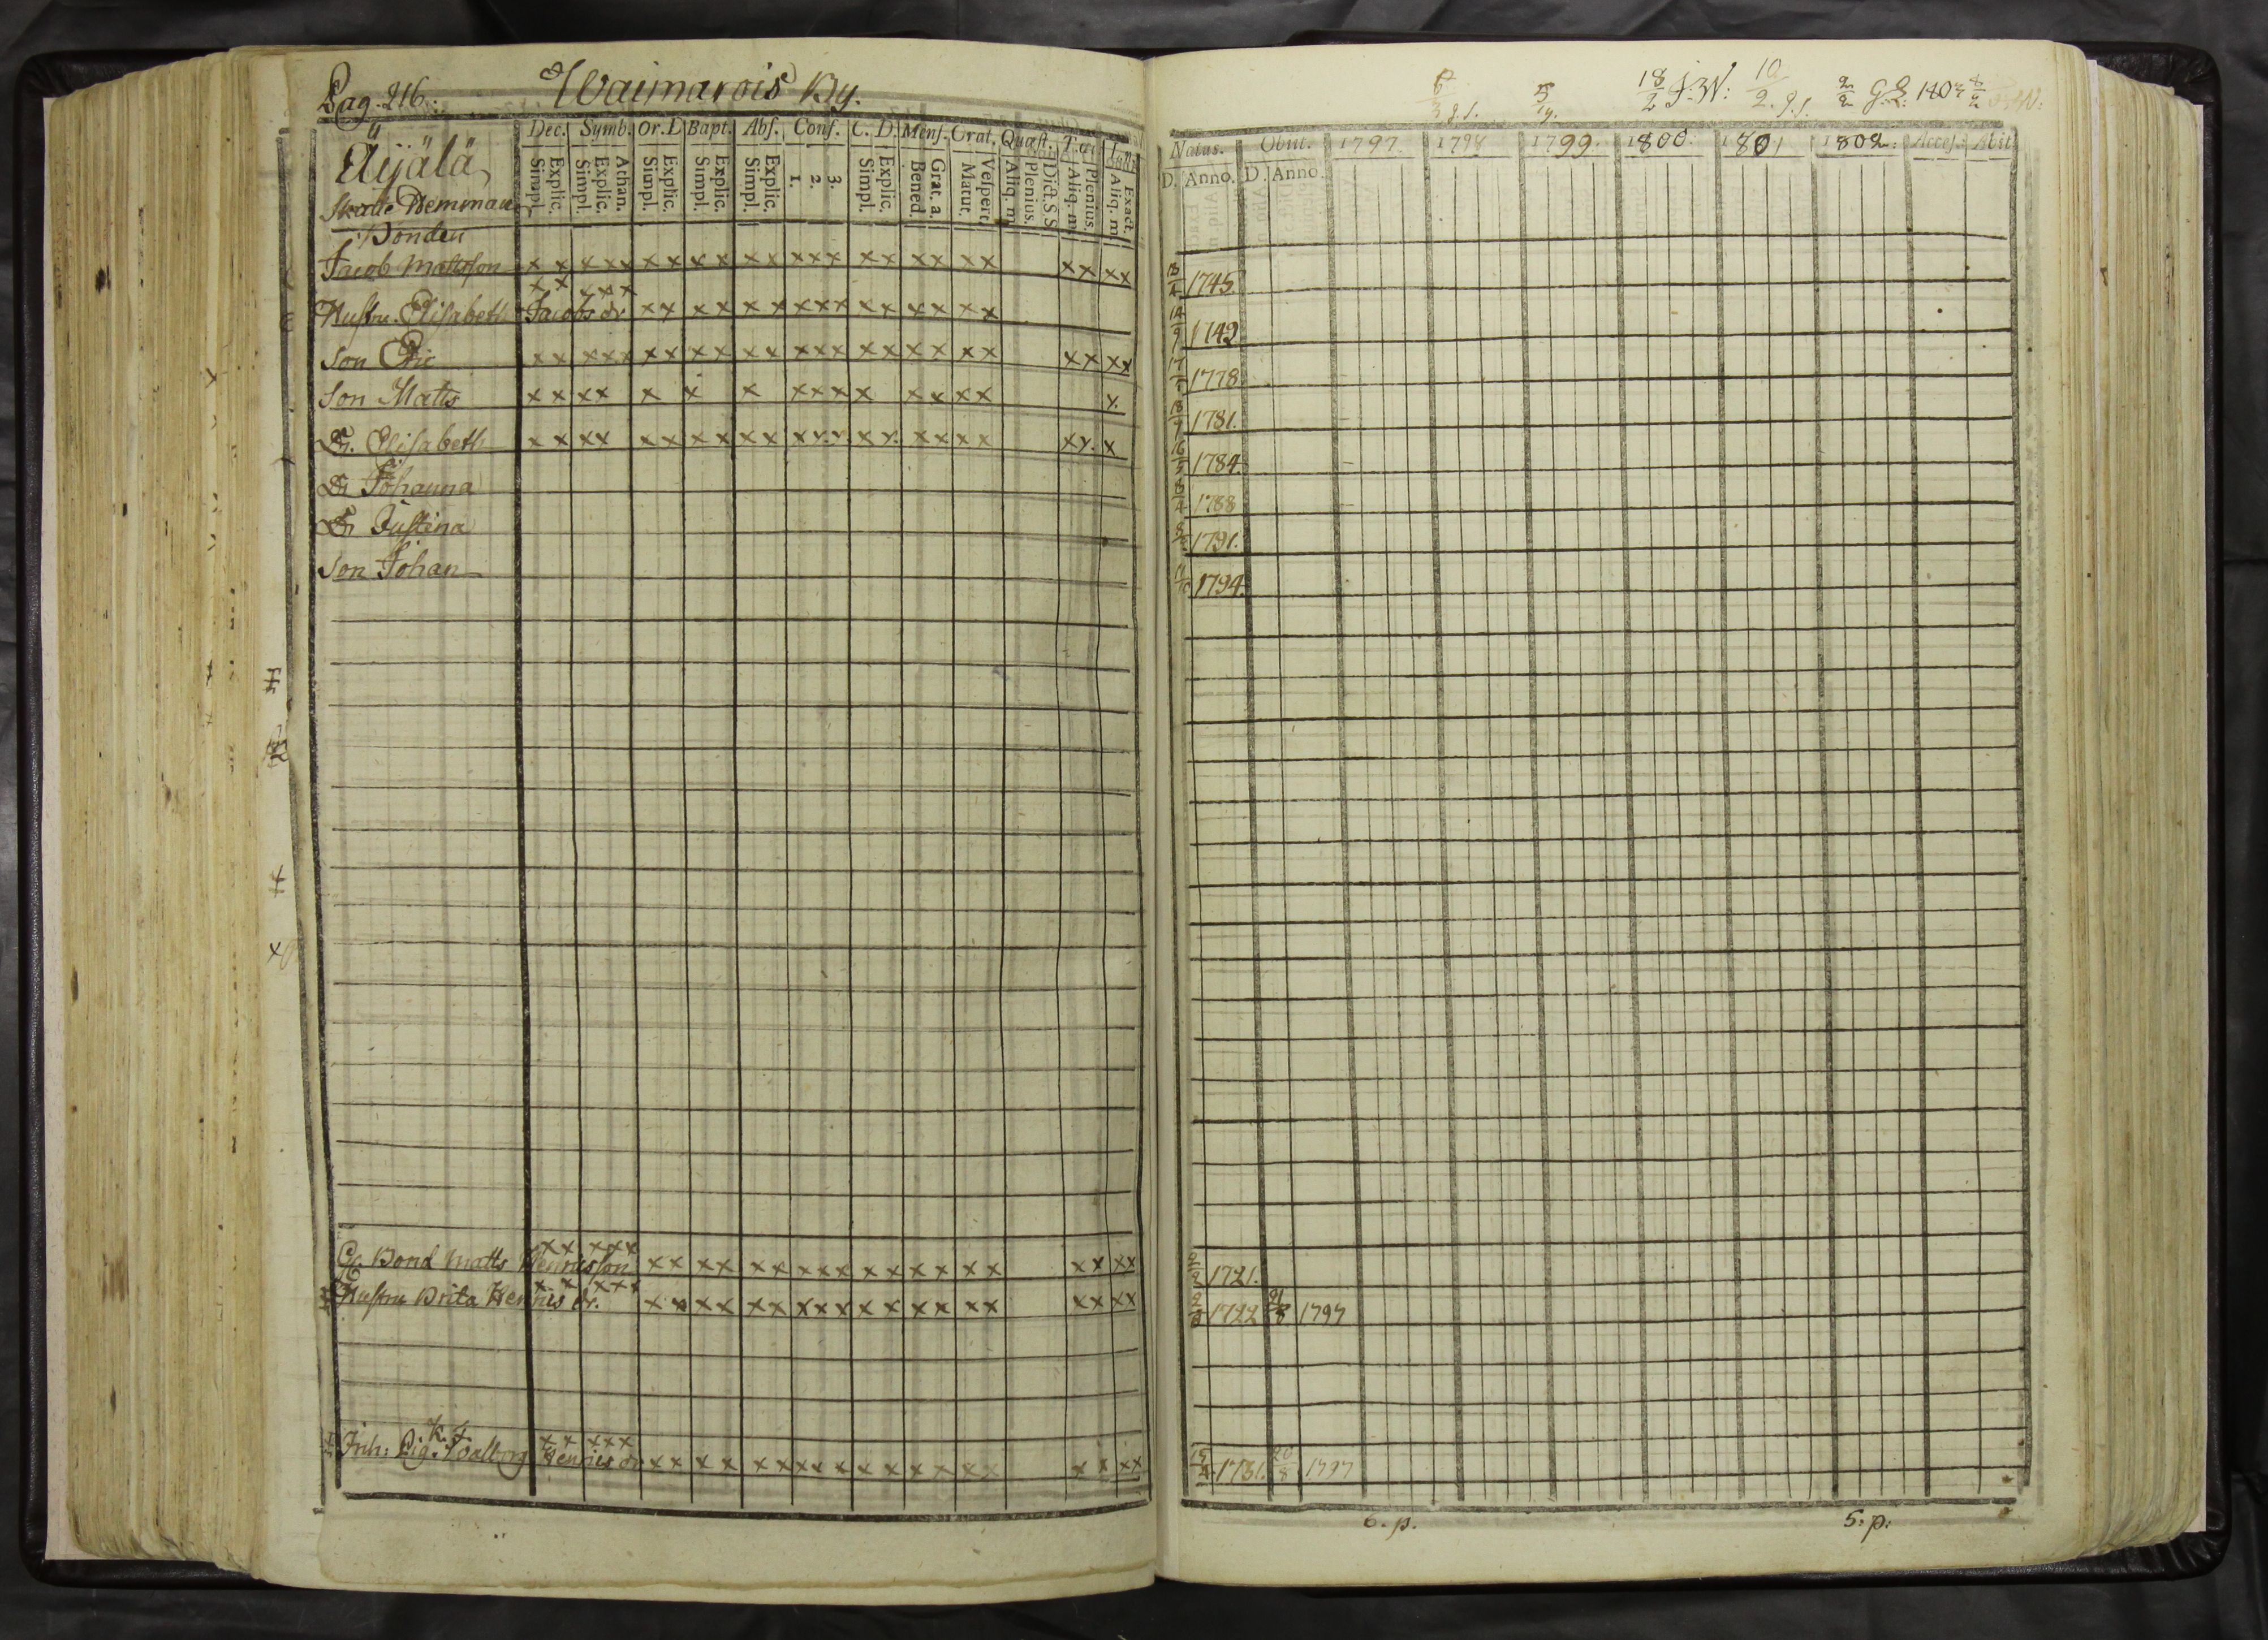 Pag. 216. Waimarois By.
Äijälä
Skatte Hemman
Dec. Symb. Or. D Bapt. Abs. Conf. C. D. Mens. Grat. Quæst.
Simpl. Explic. Simpl. Explic. Athan. Simpl. Explic. Simpl. Explic. Simpl. Explic. 1. 2. 3. Simpl. Explic. Bened. Grat. a. Matut. Vespert. Aliq. m Plenius. Dict. S. S Aliq. m Plenius. Aliq. m Exact.
Bonden
Jacob Mattsson x x x x x x x x x x x x x x x x x x x x x x x x
x x x x x
Hustru Elisabeth Jacobs dr x x x x x x x x x x x x x x x
Son Eric x x x x x x x x x x x x x x x x x x x x x x x x
Son Matts x x x x x x x x x x x x x x x x
Dr. Elisabeth x x x x x x x x x x x x x x x x x x x x x x
Dr Johanna
Dr Justina
Son Johan
x x x x x
Bond Matts Henricsson x x x x x x x x x x x x x x x x x x x
x x x x x
Hustru Brita Henrics dr. x x x x x x x x x x x x x x x x x x x
K. f. x x x x x
Inh: Pig. Walborg Henrics dr x x x x x x x x x x x x x x x x x x x
18/2 J. W: 10/2. 2/2 180
Natus. Obiit. 1797. 1798 1799. 1800. 1801 1802. Acces. Abit
D. Anno. D. Anno.
1745.
14/9 1742
1778
1781.
16/5 1784.
1788
1791.
1794.
1721.
1722 21/8 1797
1731. 20/8 1797
6. p. 5: p: